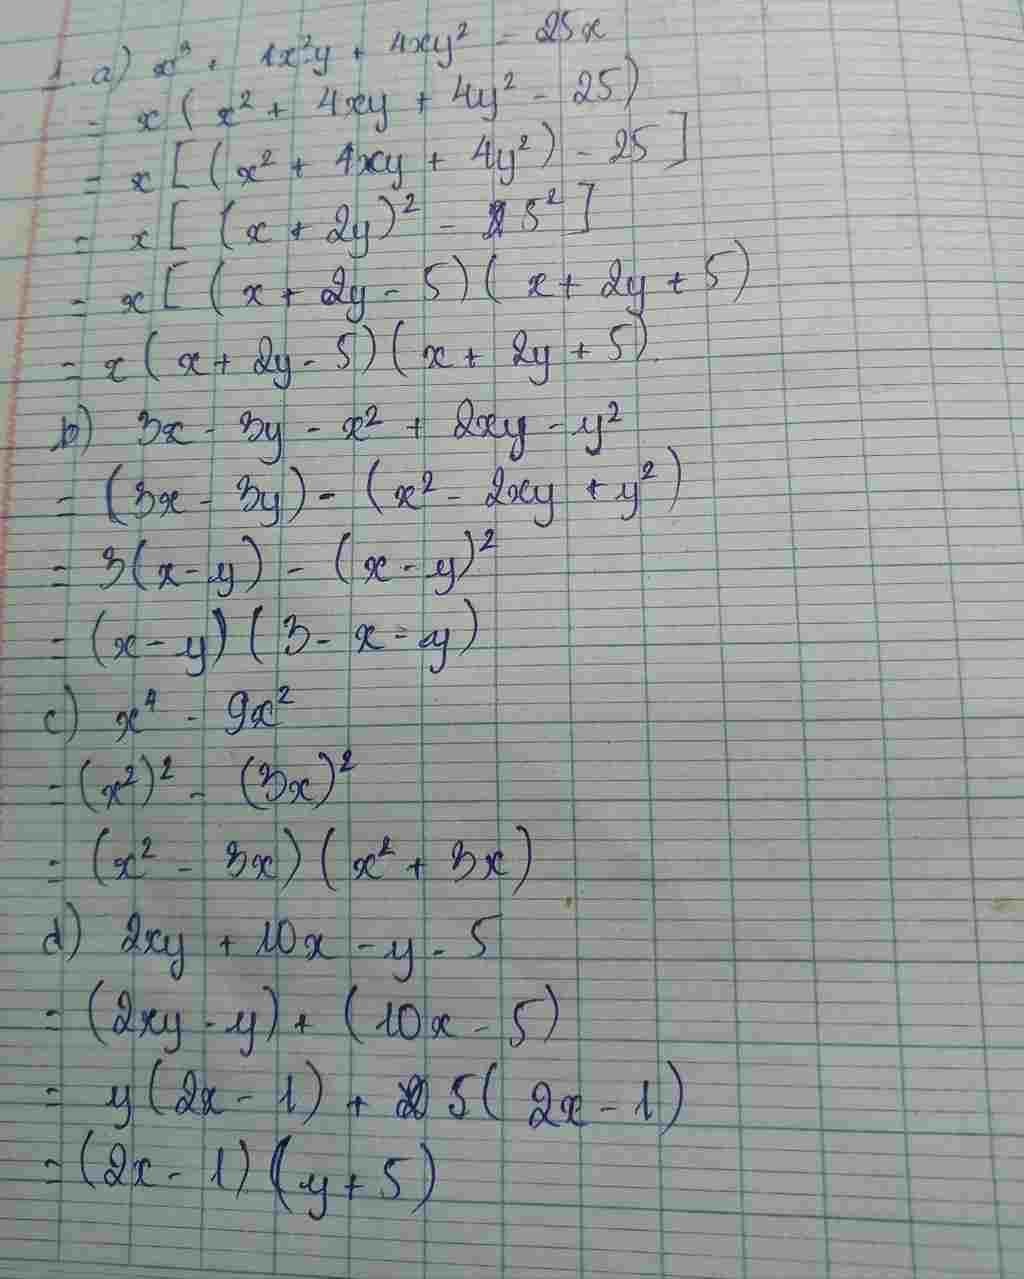 1. a) x³ + 4x²y + 4xy² - 25x
= x ( x² + 4xy + 4y² - 25)
= x [ (x² + 4xy + 4y²) - 25 ]
= x [ (x + 2y)² - 5² ]
= x [ (x + 2y - 5) ( x + 2y + 5)
= x ( x + 2y - 5) ( x + 2y + 5)
b) 3x - 3y - x² + 2xy - y²
= (3x - 3y) - (x² - 2xy + y²)
= 3(x - y) - (x - y)²
= (x - y) (3 - x - y)
c) x⁴ - 9x²
= (x²)² - (3x)²
= (x² - 3x) (x² + 3x)
d) 2xy + 10x - y - 5
= (2xy - y) + (10x - 5)
= y (2x - 1) + 5 ( 2x - 1)
= (2x - 1) (y + 5)